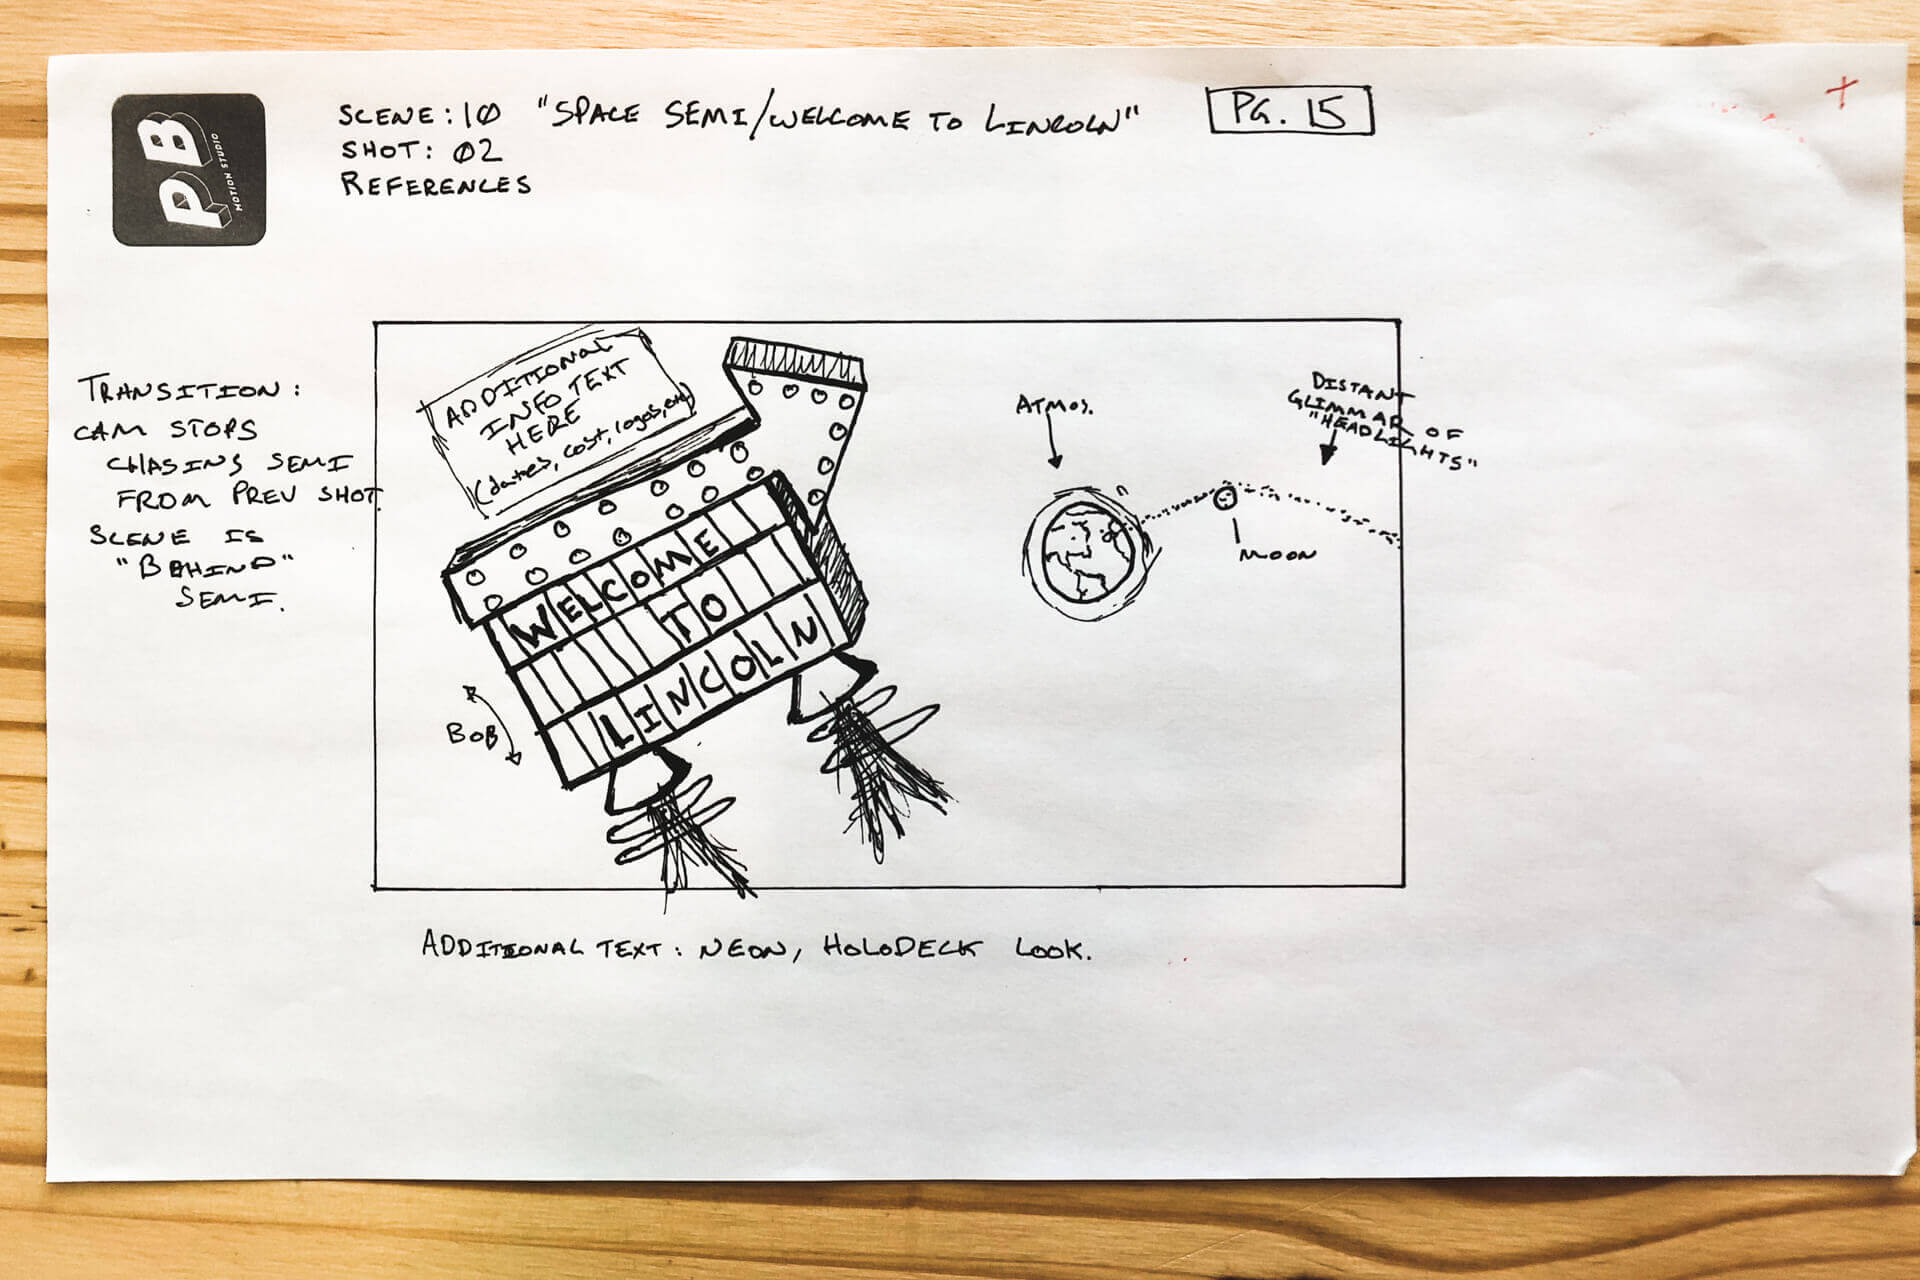 PB
MOTION STUDIO
SCENE: 10 "SPACE SEMI/WELCOME TO LINCOLN"
PG. 15
SHOT: 02
REFERENCES
TRANSITION:
CAM STOPS
CHASING SEMI
FROM PREV SHOT.
SCENE IS
"BEHIND"
SEMI.
ADDITIONAL
INFO TEXT
HERE
(dates, cost, logos, etc)
WELCOME
TO
LINCOLN
BOB
ATMOS.
MOON
DISTANT
GLIMMAR OF
"HEADLIGHTS"
ADDITIONAL TEXT: NEON, HOLODECK LOOK.